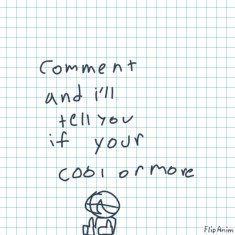 Comment
and i'll
tell you
if your
cool or more
FlipAnim